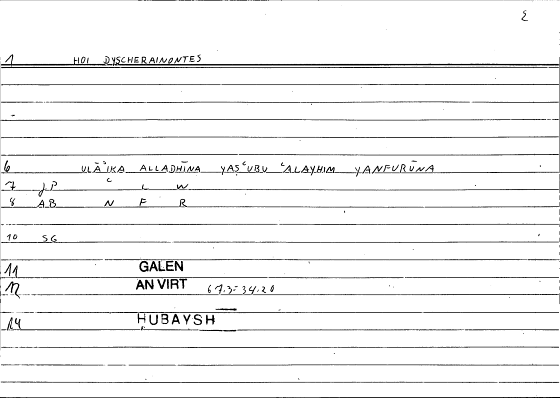 ξ
1 HOI DYSCHERAINONTES
6 ULĀʾIKA ALLADHĪNA YAṢʿUBU ʿALAYHIM YANFURŪNA
7 J.P ʿ L W
8 A.B N F R
10 SG
11 GALEN
12 AN VIRT 67.3=34.20
14 ḤUBAYSH